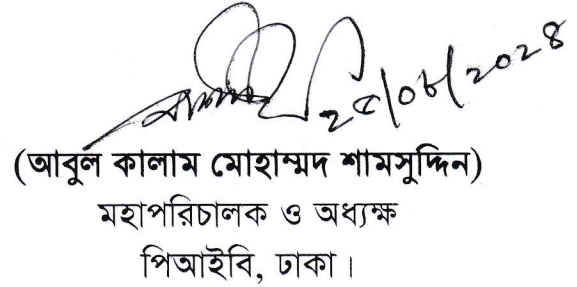 ২৫/০৮/২০২৪
(আবুল কালাম মোহাম্মদ শামসুদ্দিন)
মহাপরিচালক ও অধ্যক্ষ
পিআইবি, ঢাকা।